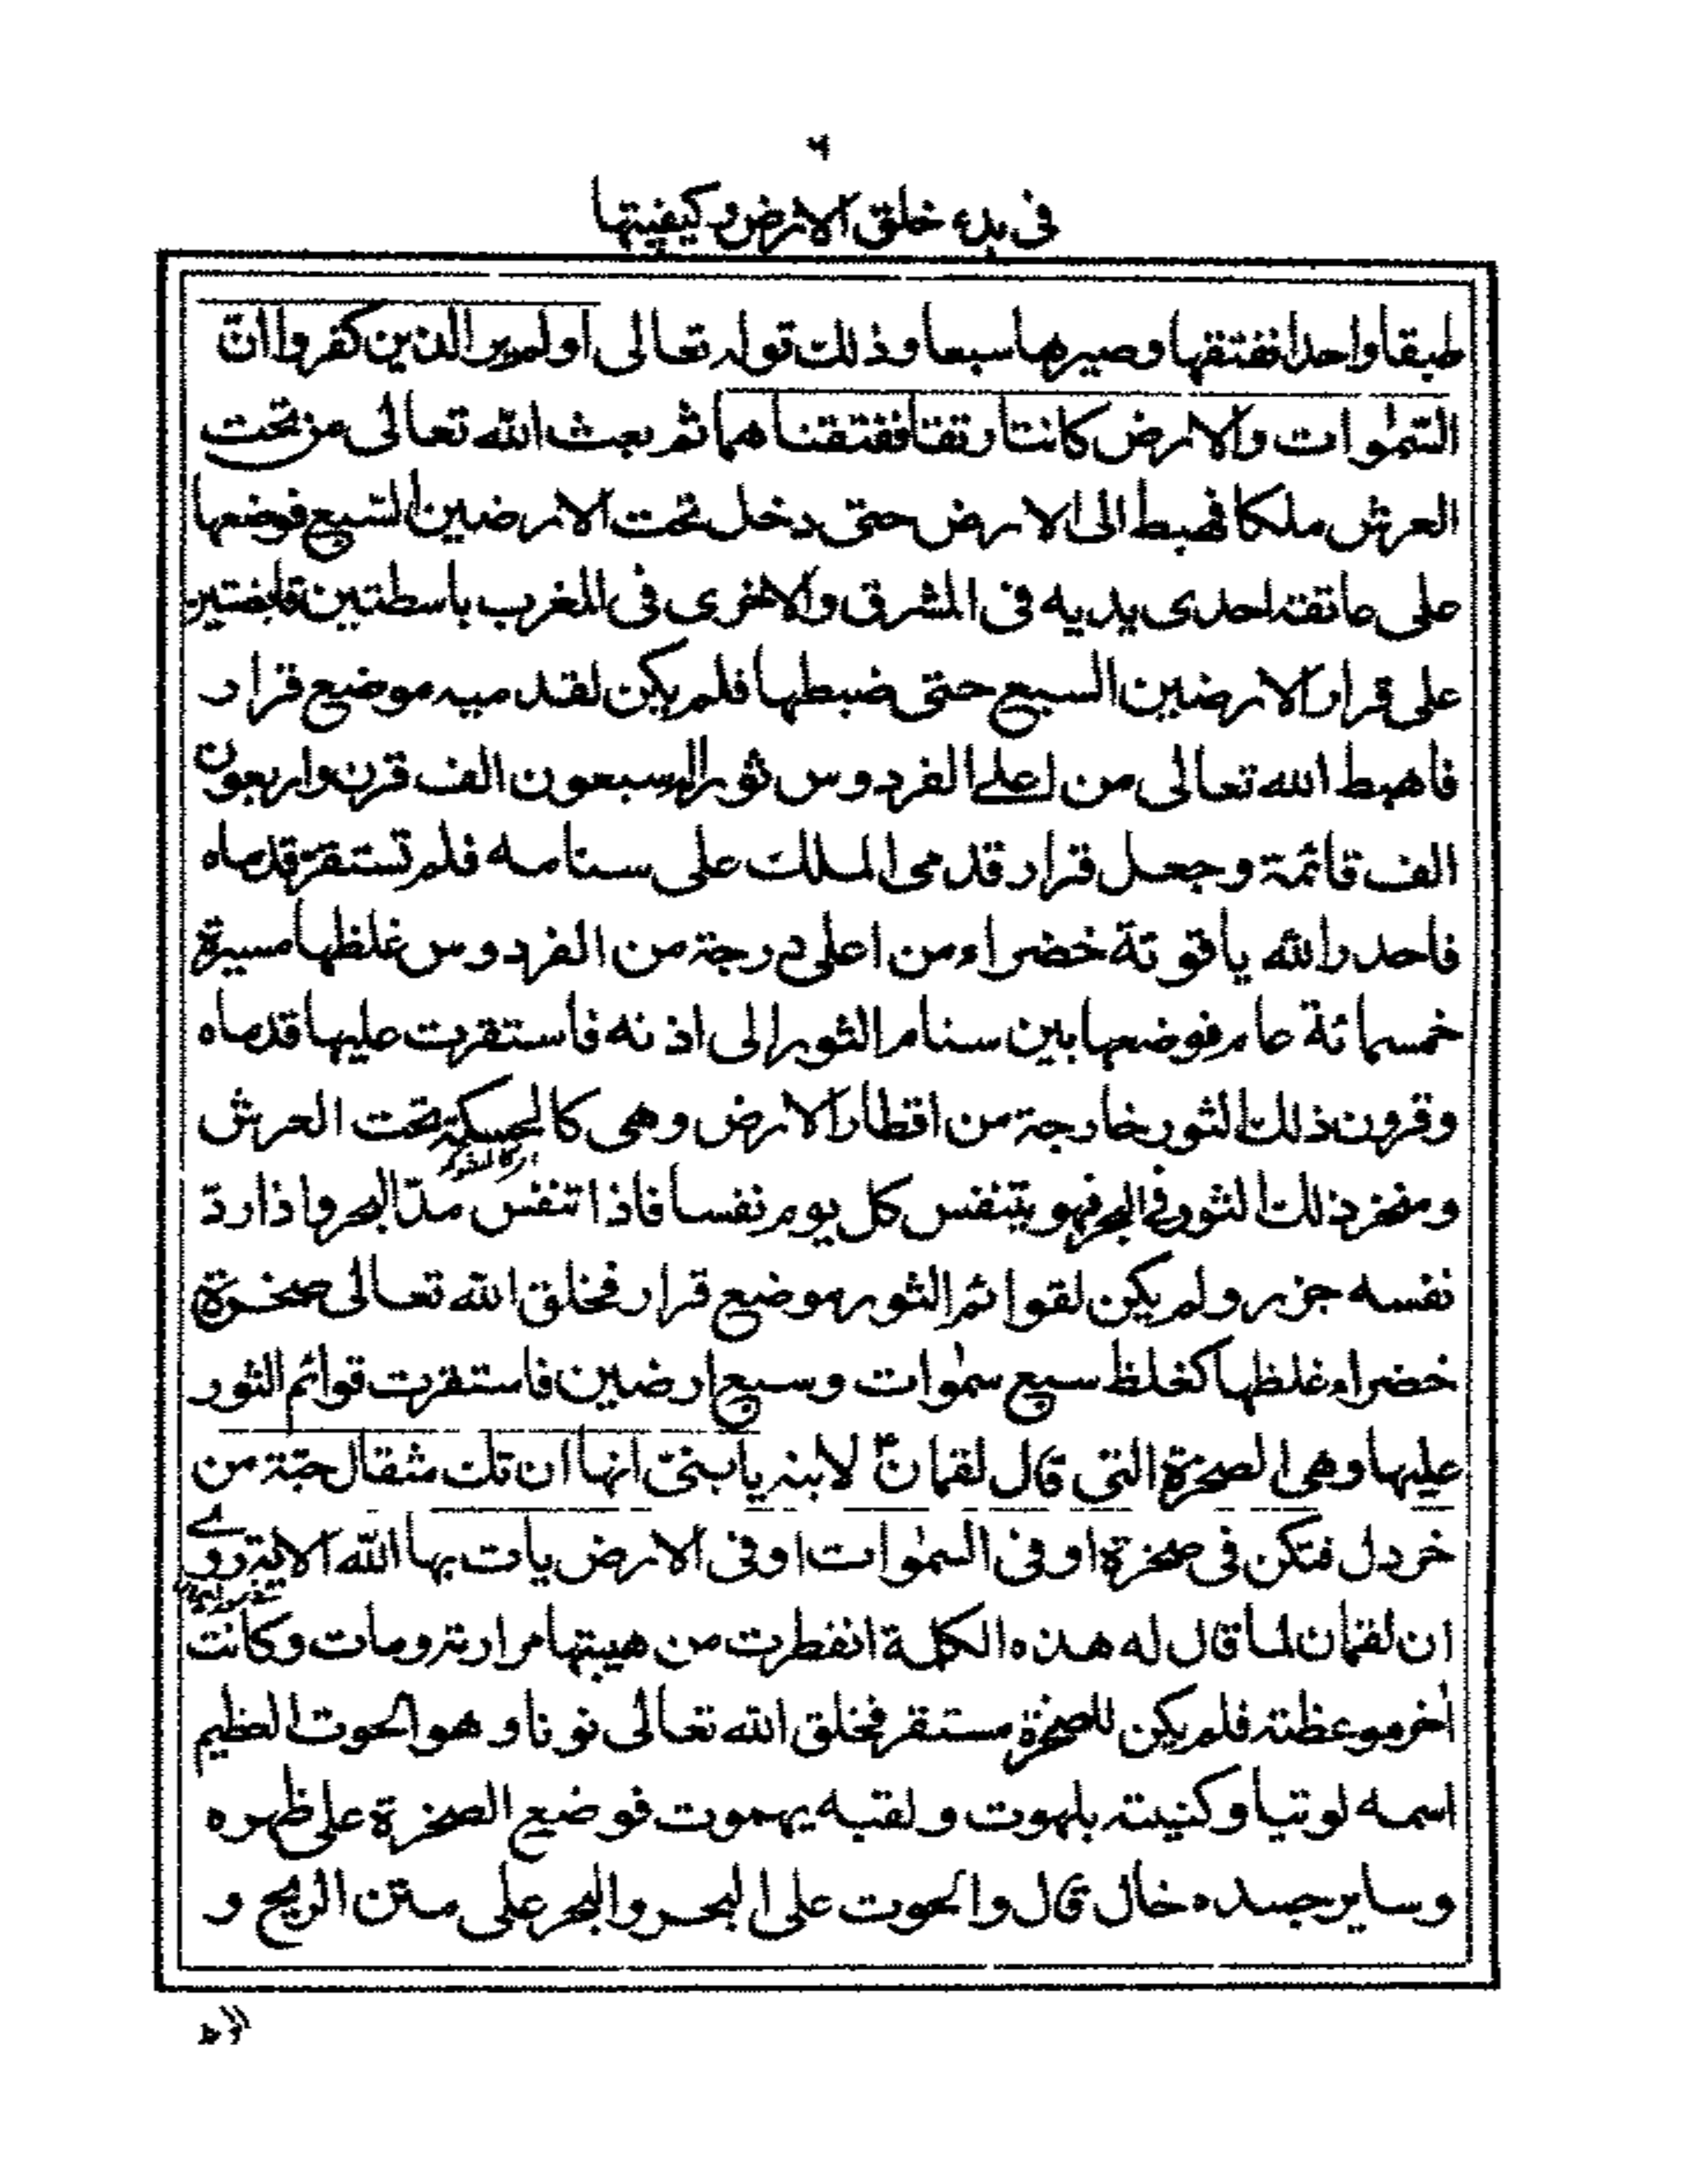 ٦
فی بدء خلق الارض وکیفیتها
طبقا واحدا ففتقها وصیرها سبعا وذلك قوله تعالی اولم یر الذین کفروا انّ
السّمٰوات والارض کانتا رتقا ففتقنا هما ثم بعث اللّٰه تعالی من تحت
العرش ملکا فهبط الی الارض حتی دخل تحت الارضین السّبع فوضعها
علی عاتقه احدی یدیه فی المشرق والاخری فی المغرب باسطتین قابضتین
علی قرار الارضین السبع حتی ضبطها فلم یکن لقدمیه موضع قرار
فاهبط الله تعالی من اعلے الفردوس ثورا له سبعون الف قرن واربعون
الف قائمة وجعل قرار قدمی الملك علی سنامه فلم تستقرّ قدماه
فاحدر الله یاقوتة خضراء من اعلی درجة من الفردوس غلظها مسیرة
خمسمائة عام فوضعها بین سنام الثور الی اذنه فاستقرت علیها قدماه
وقرون ذلك الثور خارجة من اقطار الارض وهی کالحسکة تحت العرش
ومنخر ذلك الثور فی البحر فهو یتنفس کل یوم نفسا فاذا تنفس مدّ البحر واذا ردّ
نفسه جزر ولم یکن لقوائم الثور موضع قرار فخلق الله تعالی صخرة
خضراء غلظها کغلظ سبع سمٰوات وسبع ارضین فاستقرت قوائم الثور
علیها وهی الصخرة التی قال لقمانؑ لابنه یا بنیّ انها ان تك مثقال حبّة من
خردل فتکن فی صخرة او فی السمٰوات او فی الارض یات بها اللّٰه الایة روے
ان لقمان لما قال له هذه الکلمة انفطرت من هیبتها مرارته ومات وکانت
اٰخر موعظته فلم یکن للصخرة مستقر فخلق الله تعالی نونا وهو الحوت العظیم
اسمه لوتیا وکنیته بلهوت ولقبه یهموت فوضع الصخرة علی ظهره
وسایر جسده خال قال والحوت علی البحر والبحر علی متن الریح و